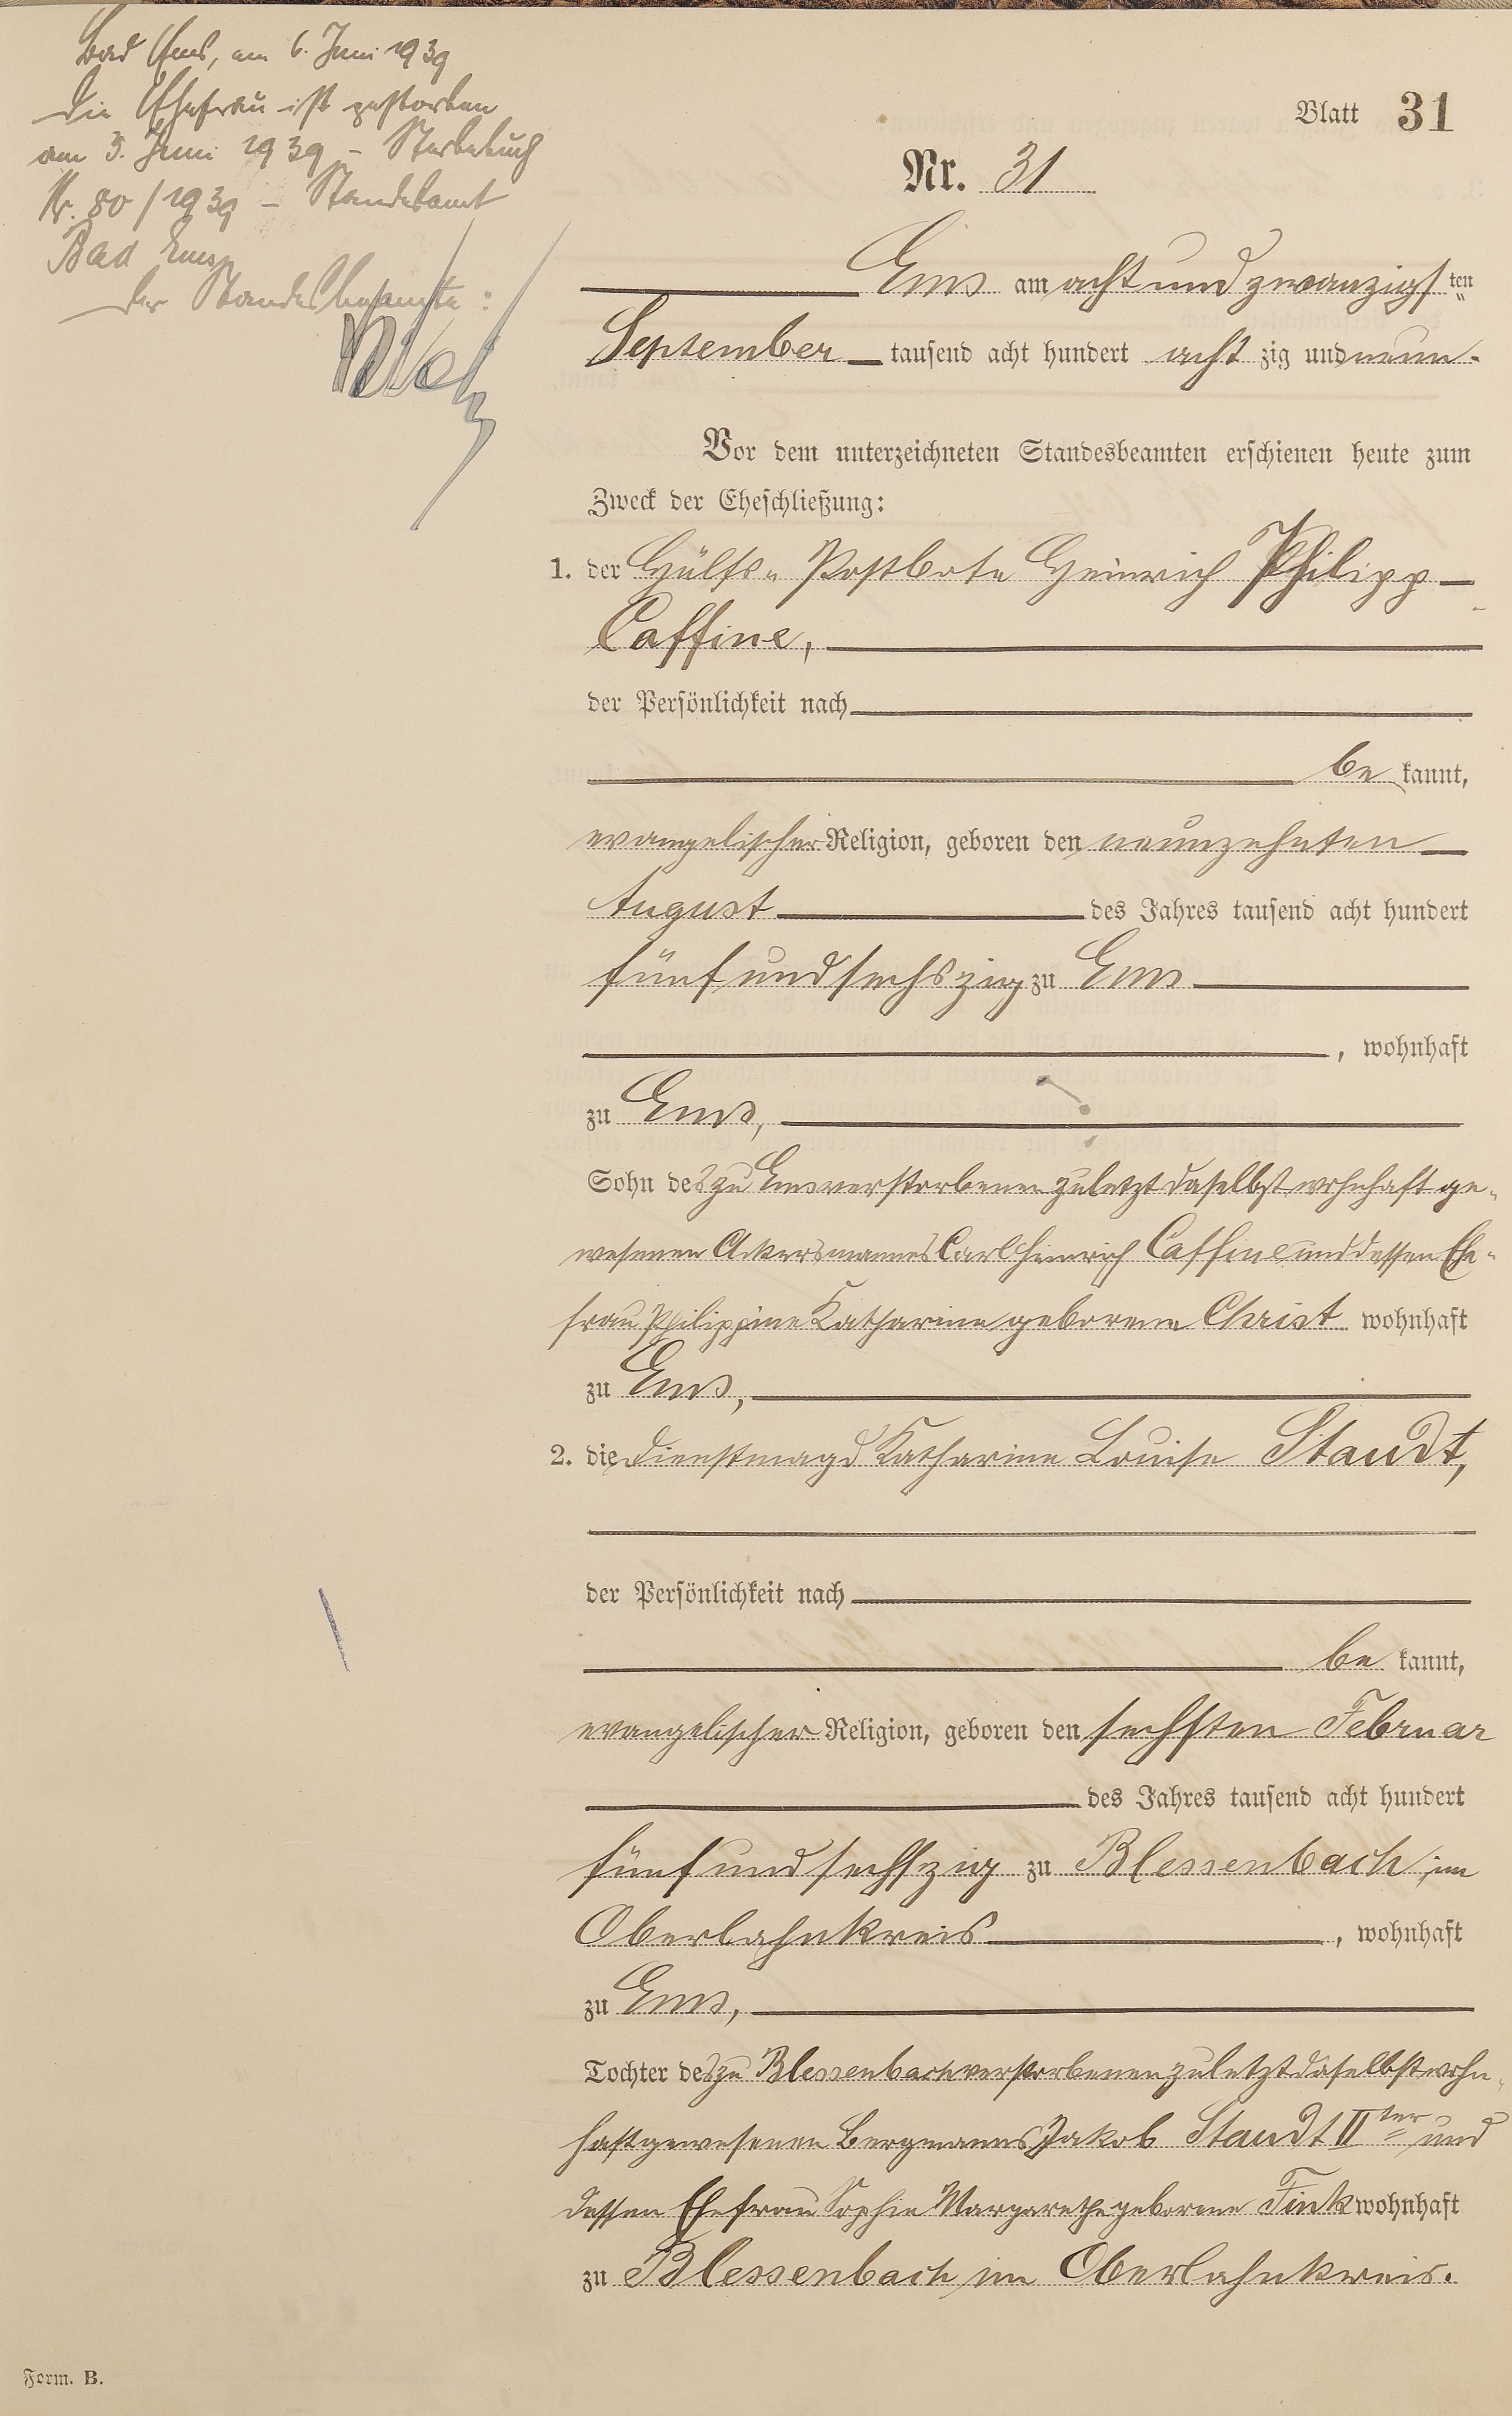 Bad Ems, am 6. Juni 1939
Die Ehefrau ist gestorben
am 3. Juni 1939 – Sterbebuch
Nr. 80/1939 – Standesamt
Bad Ems
Der Standesbeamte:
Blatt 31
Nr. 31
Ems am acht und zwanzigsten
September tausend acht hundert acht zig und neun.
Vor dem unterzeichneten Standesbeamten erschienen heute zum
Zweck der Eheschließung:
1. der Hülfs- Postbote Heinrich Philipp
Caffine,
der Persönlichkeit nach
be kannt,
evangelischer Religion, geboren den neunzehnten
August des Jahres tausend acht hundert
fünf und sechszig zu Ems
, wohnhaft
zu Ems,
Sohn des zu Ems verstorbenen zuletzt daselbst wohnhaft ge-
wesenen Ackersmannes Carl Heinrich Caffine und dessen Ehe-
frau Philippine Katharine geborene Christ wohnhaft
zu Ems,
2. die Dienstmagd Katharine Louise Staudt,
der Persönlichkeit nach
be kannt,
evangelischer Religion, geboren den sechsten Februar
des Jahres tausend acht hundert
fünf und sechszig zu Blessenbach im
Oberlahnkreis, wohnhaft
zu Ems,
Tochter des zu Blessenbach verstorbenen zuletzt daselbst wohn-
haft gewesenen Bergmanns Jakob Staudt IIter und
dessen Ehefrau Sophie Margarethe geborene Fink wohnhaft
zu Blessenbach im Oberlahnkreis.
Form. B.